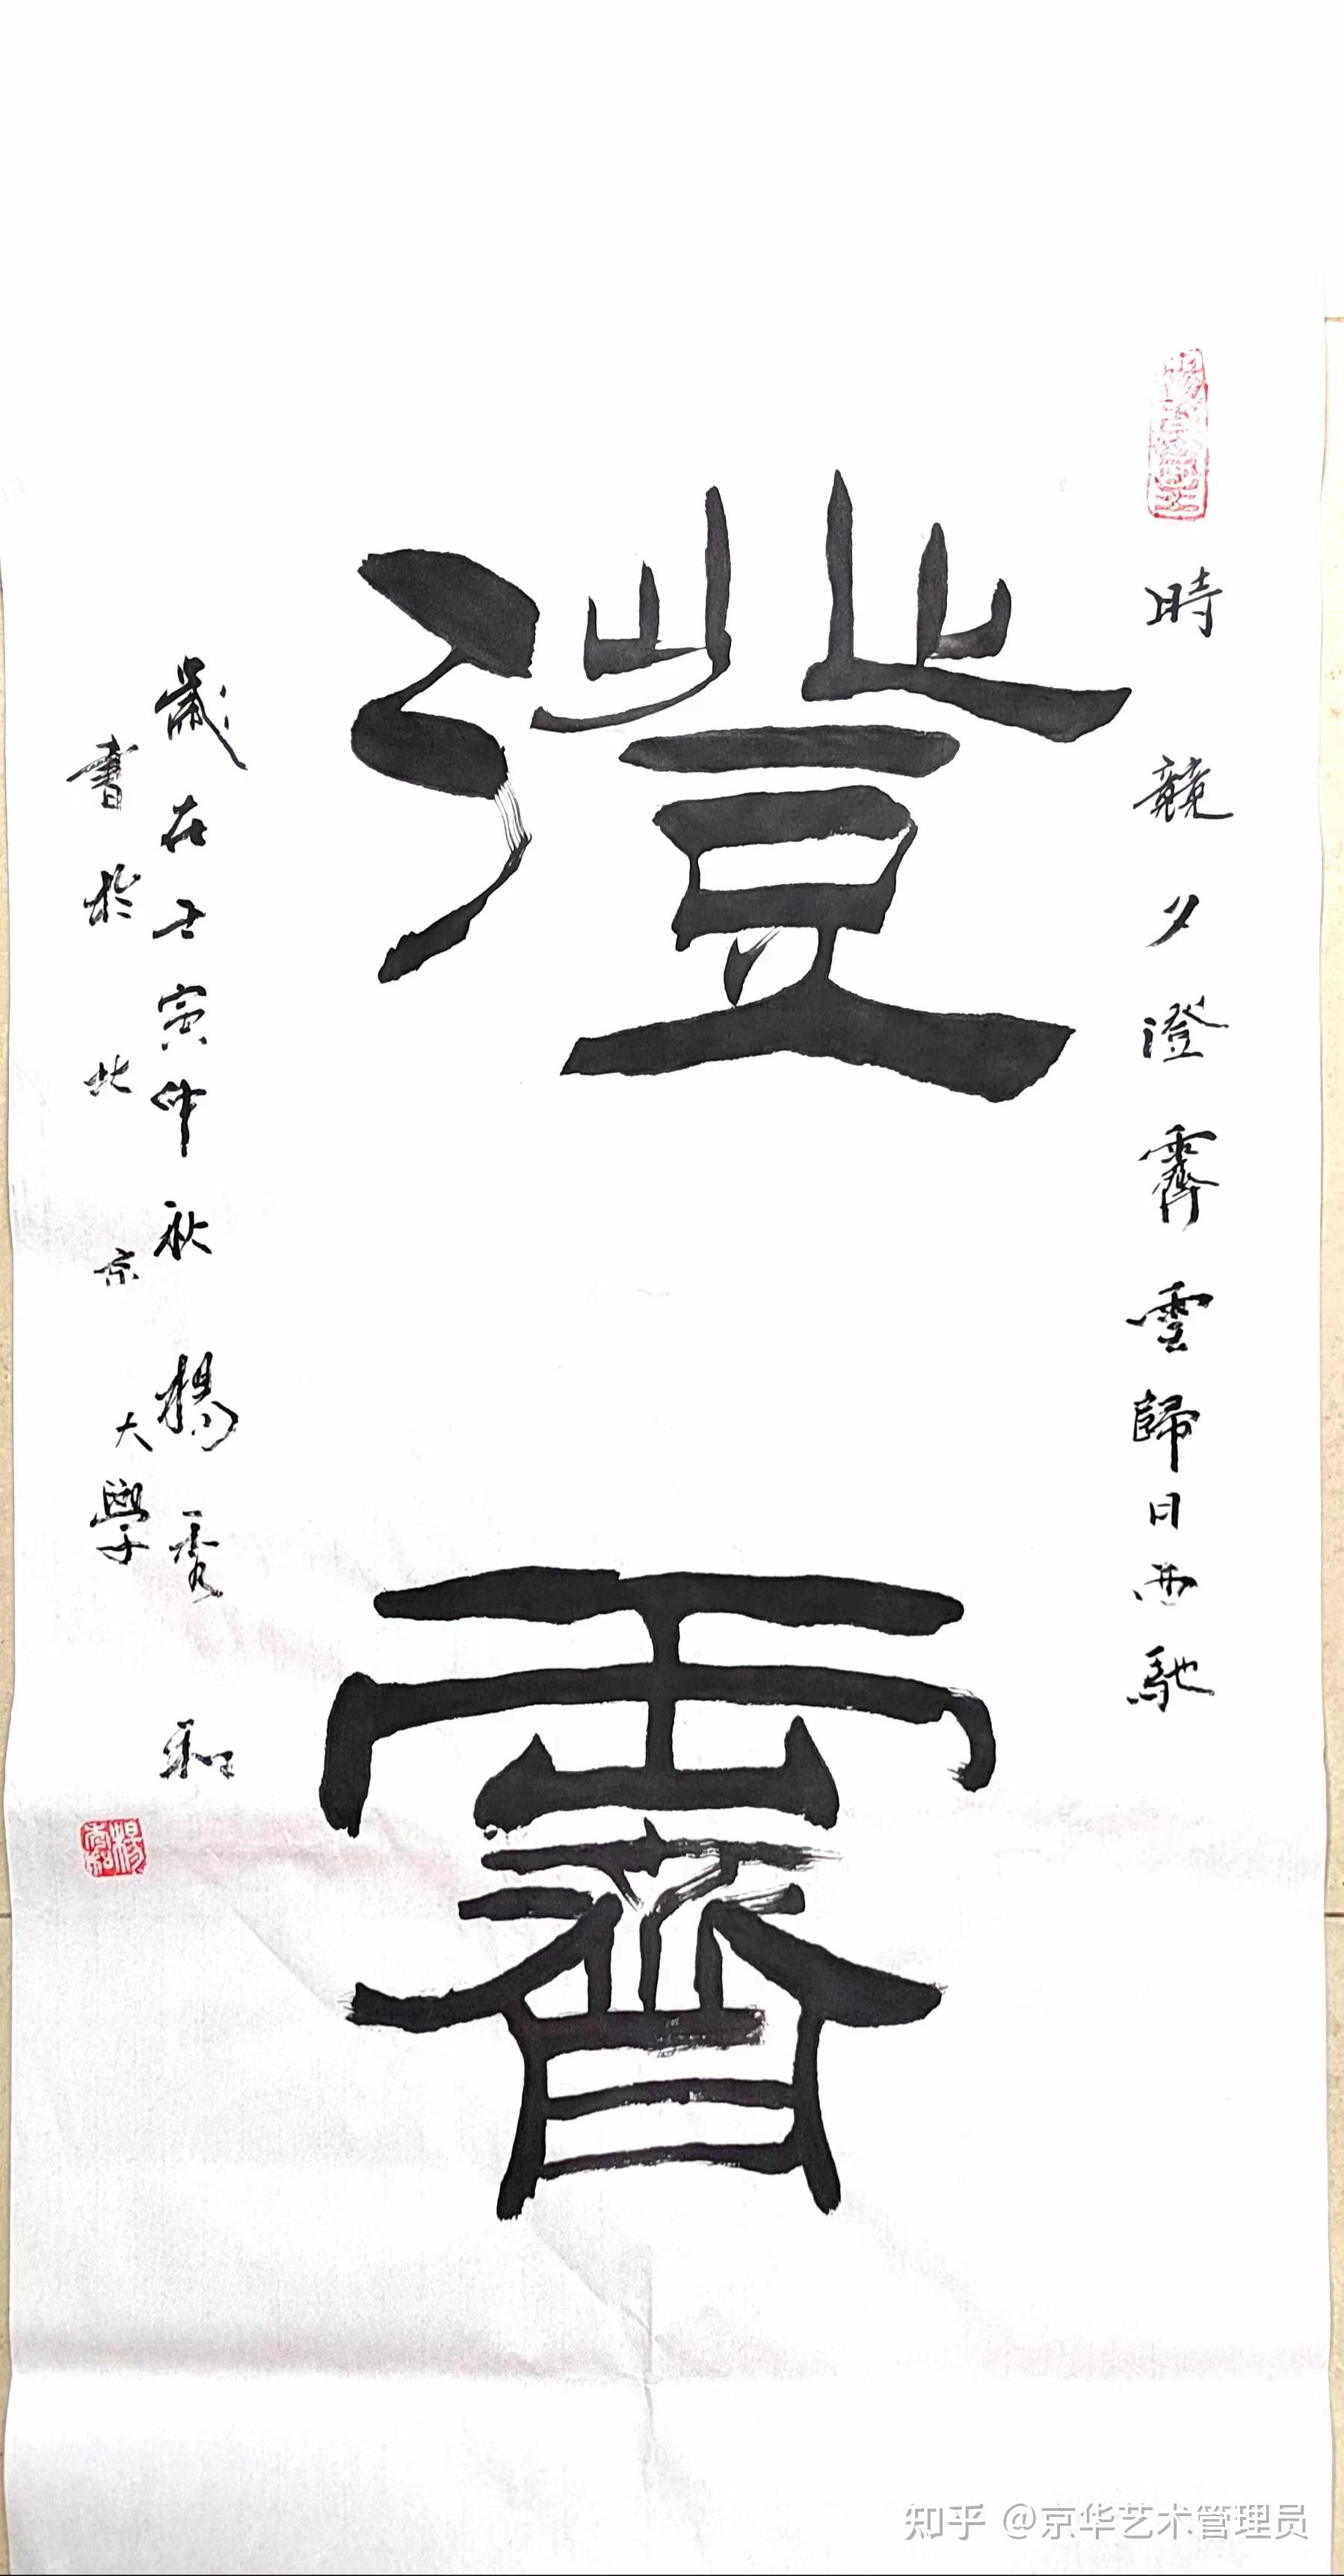 時競夕澄霽雲歸日西馳
澄霽
歲在壬寅仲秋楊秀和
書於北京大學
楊秀和
知乎 @京华艺术管理员